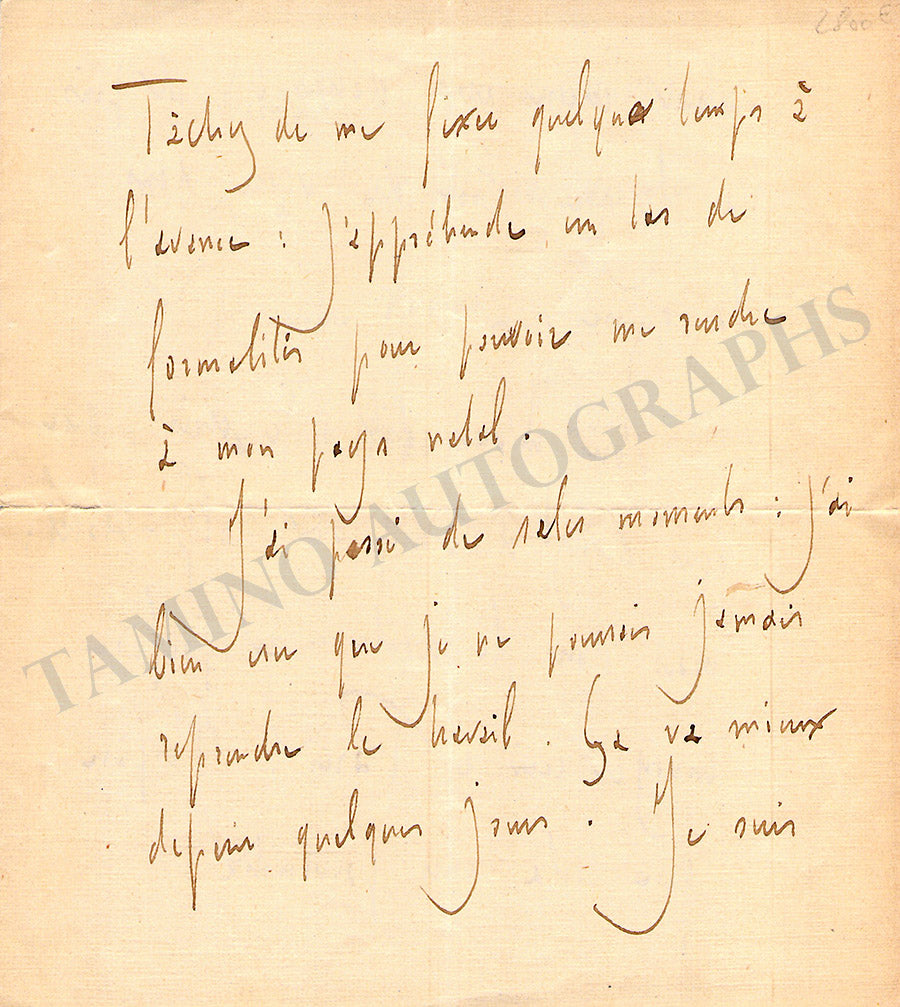 2800€
Tâchez de me fixer quelque temps à
l'avance : j'appréhende un tas de
formalités pour pouvoir me rendre
à mon pays natal.
J'ai passé de sales moments : j'ai
bien cru que je ne pourrais jamais
reprendre le travail. Ça va mieux
depuis quelques jours. Je suis
TAMINO AUTOGRAPHS